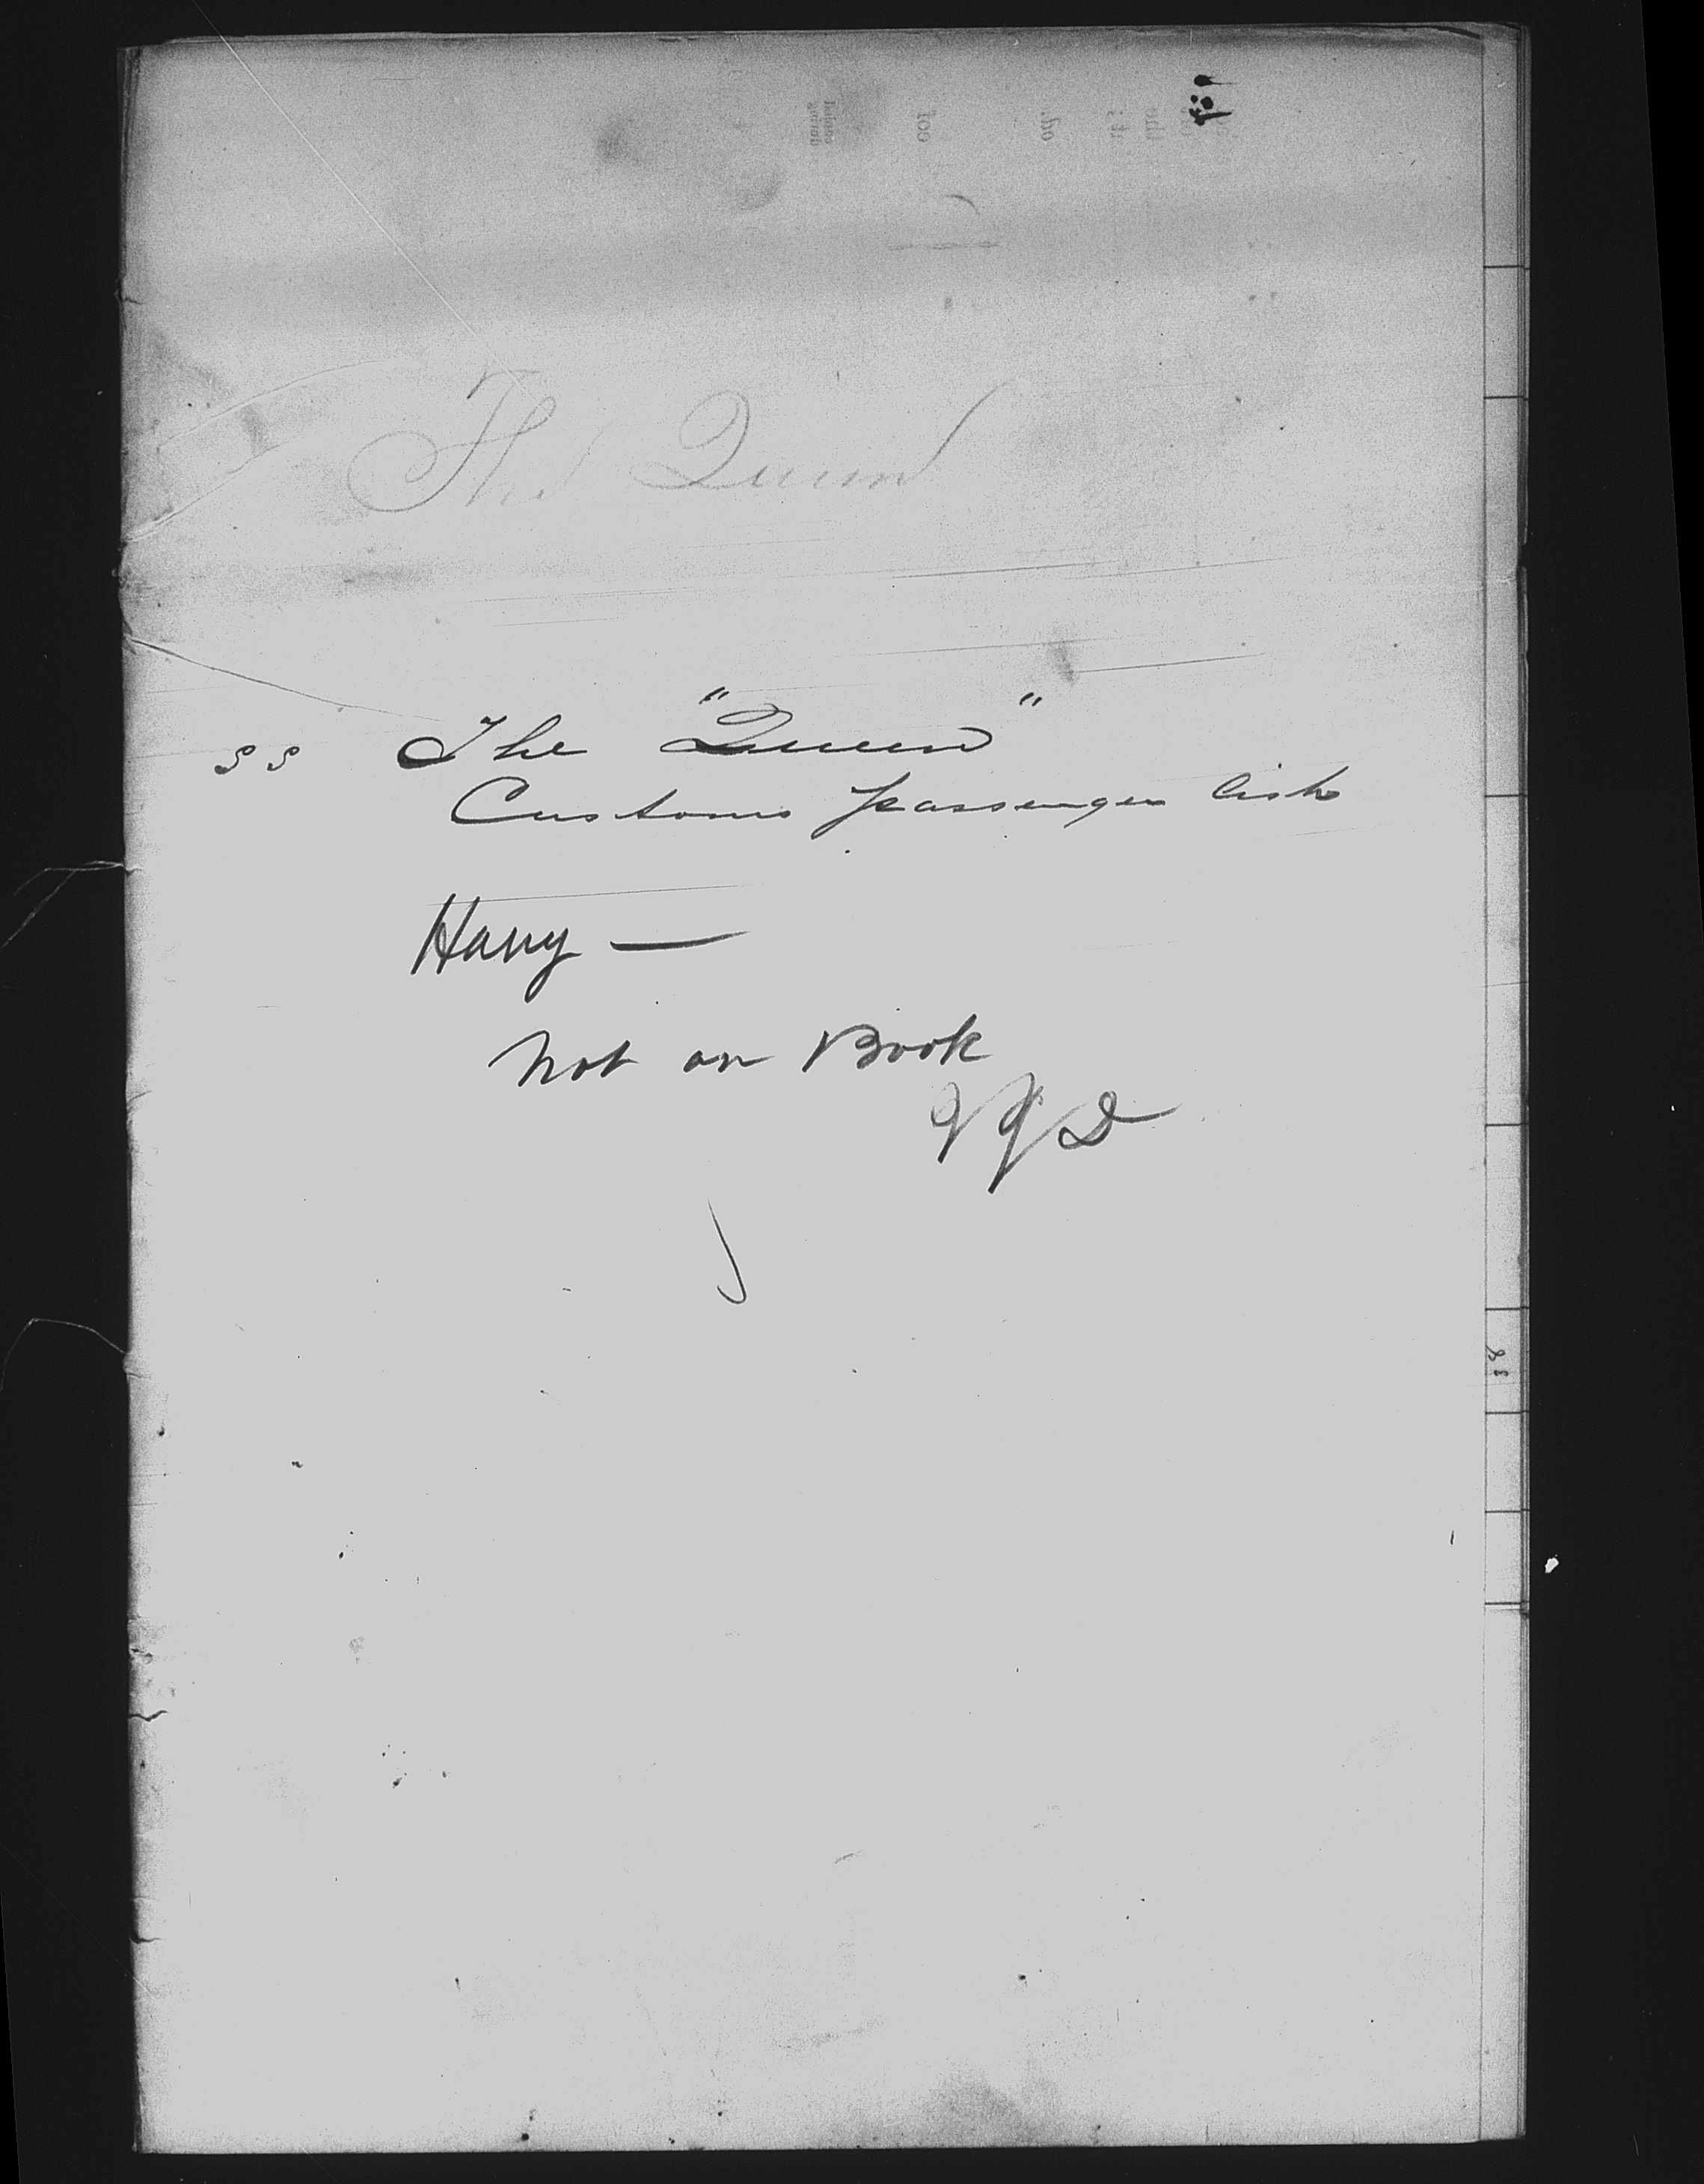 The Queen
SS The "Queen"
Customs passenger list
Harry —
Not on Book